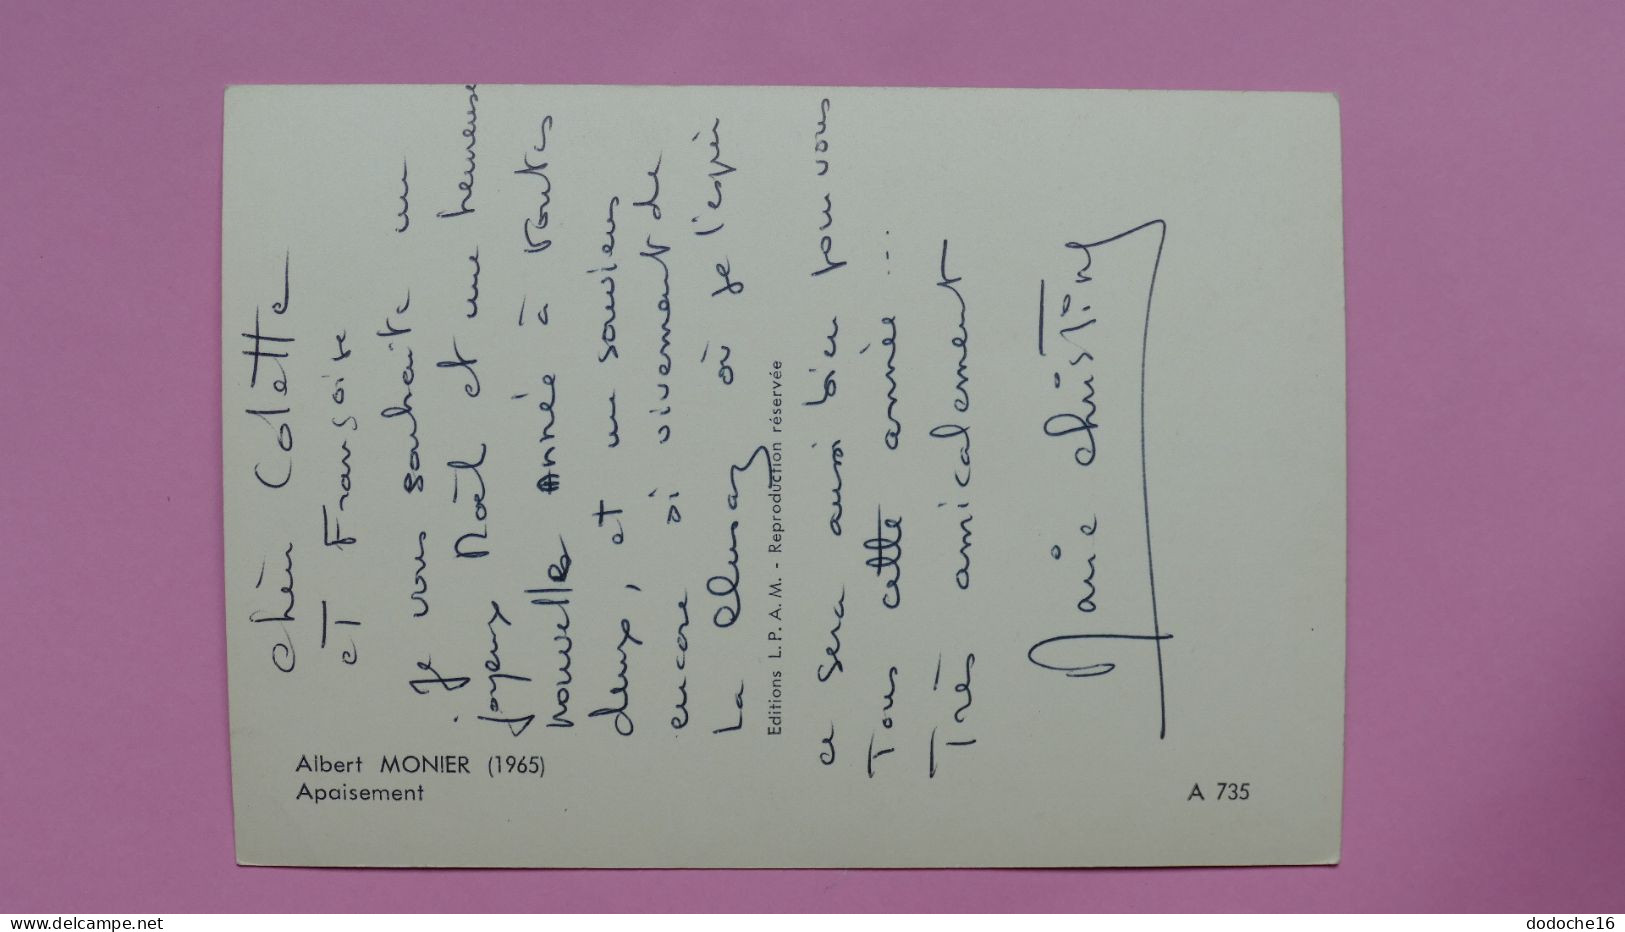 Chère Colette
et Françoise
Je vous souhaite un
joyeux Noël et une heureuse
nouvelle Année à toutes
deux, et me souviens
encore si vivement de
La Clusaz où je l'espère
ce sera aussi bien pour vous
Tous cette année ...
Très amicalement
Marie Christine
Editions L. P. A. M. - Reproduction réservée
Albert MONIER (1965)
Apaisement
A 735
www.delcampe.net
dodoche16